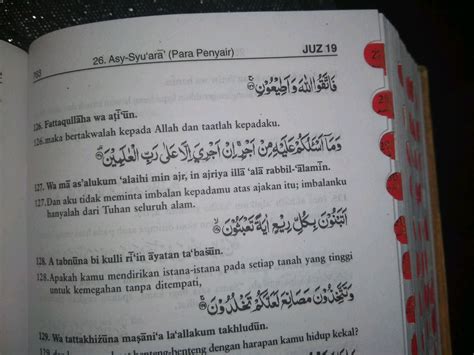 26. Asy-Syu‘arā' (Para Penyair) JUZ 19
فَاتَّقُوا اللّٰهَ وَاَطِيْعُوْنِ
126. Fattaqullāha wa aṭī‘ūn.
126.maka bertakwalah kepada Allah dan taatlah kepadaku.
وَمَآ اَسْـَٔلُكُمْ عَلَيْهِ مِنْ اَجْرٍ اِنْ اَجْرِيَ اِلَّا عَلٰى رَبِّ الْعٰلَمِيْنَ
127. Wa mā as'alukum ‘alaihi min ajr, in ajriya illā ‘alā rabbil-‘ālamīn.
127.Dan aku tidak meminta imbalan kepadamu atas ajakan itu; imbalanku
hanyalah dari Tuhan seluruh alam.
اَتَبْنُوْنَ بِكُلِّ رِيْعٍ اٰيَةً تَعْبَثُوْنَ
128. A tabnūna bi kulli rī‘in āyatan ta‘baṡūn.
128.Apakah kamu mendirikan istana-istana pada setiap tanah yang tinggi
untuk kemegahan tanpa ditempati,
وَتَتَّخِذُوْنَ مَصَانِعَ لَعَلَّكُمْ تَخْلُدُوْنَ
129. Wa tattakhiżūna maṣāni‘a la‘allakum takhludūn.
benteng-benteng dengan harapan kamu hidup kekal?